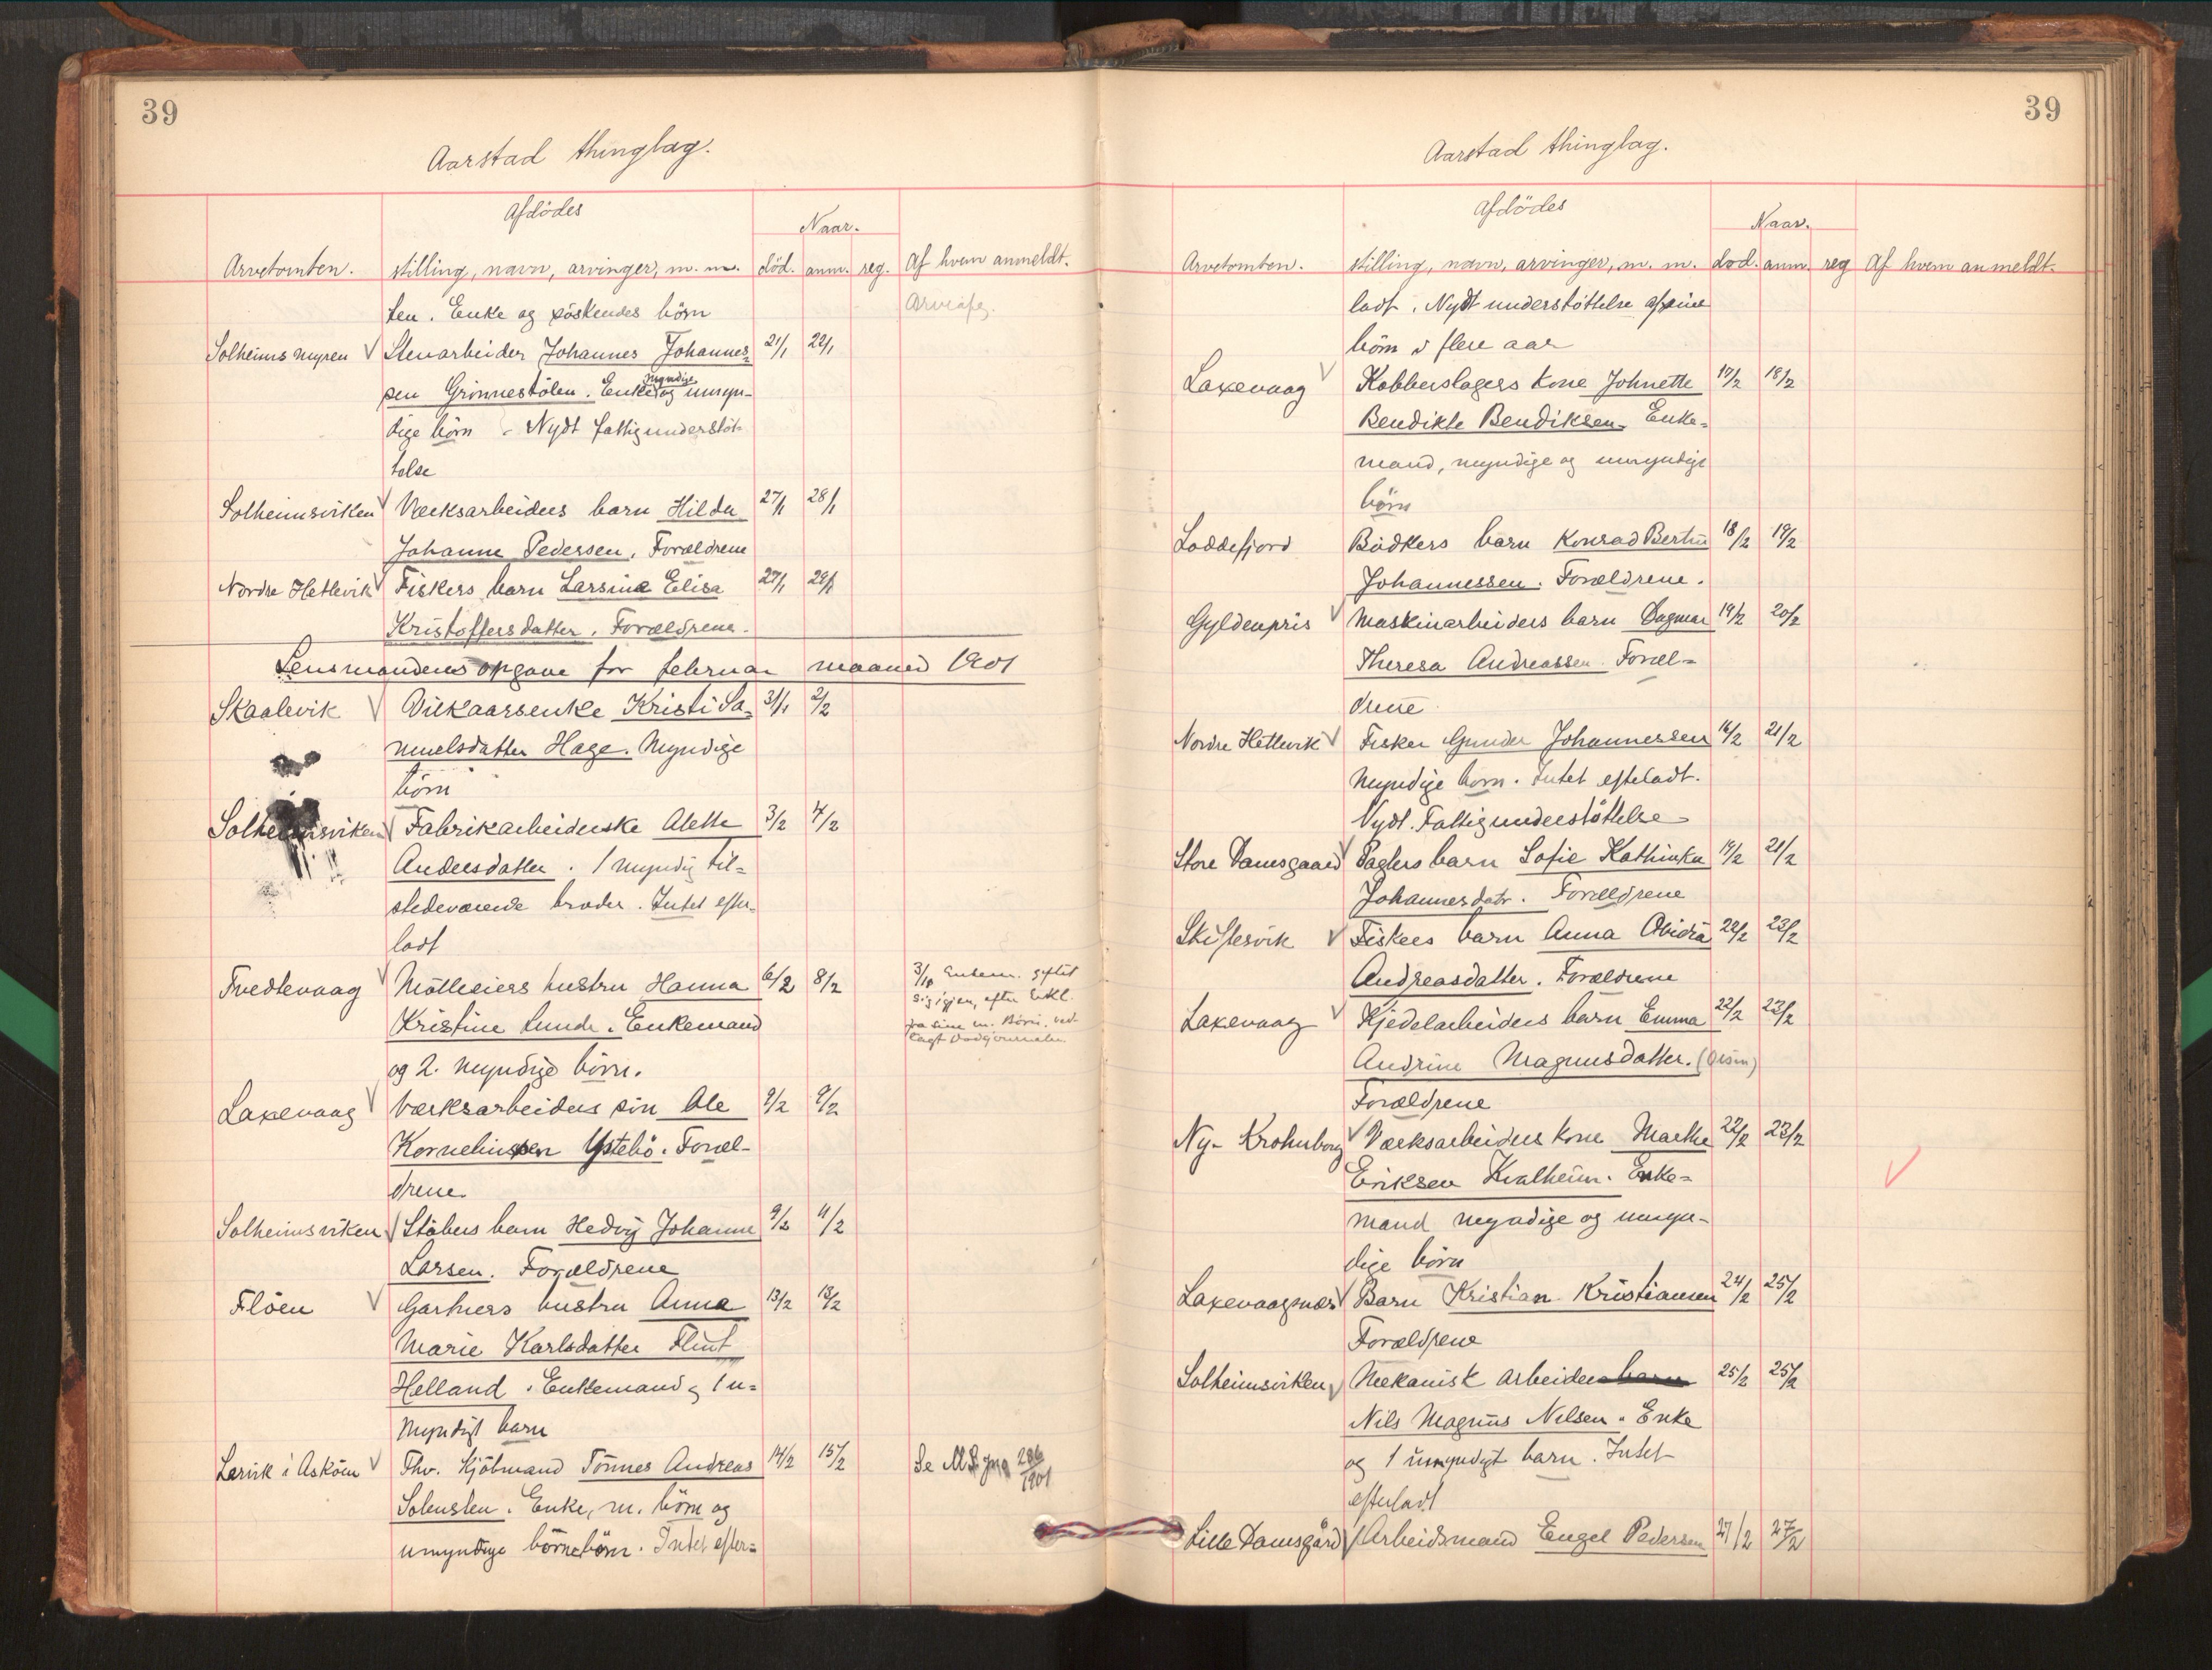 39
Aarstad thinglag.
Afdödes
Naar.
Arvetomten. stilling, navn, arvinger, m. m. död. anm. reg. Af hvem anmeldt.
ten. Enke og söskendes börn
Solheimsmyren V Stenarbeider Johannes Johannes= 21/1 22/1
sen Grönnestölen. Enke myndige og umyn-
dige börn. Nydt fattigunderstöt-
telse
Solheimsviken V Værksarbeiders barn Hilda 27/1 28/1
Johanne Pedersen. Forældrene
Nordre Hetlevik V Fiskers barn Larsine Elisa 27/1 29/1
Kristoffersdatter. Forældrene.
Lensmandens opgave for februar maaned 1901
Skaalevik V Vilkaarsenke Kristi Sa= 31/1 2/2
muelsdatter Hage. Myndige
börn
Solheimsviken V Fabrikarbeiderske Alette 3/2 4/2
Andersdatter. 1 myndig til=
stedeværende broder. Intet efter=
ladt
Tvedtevaag V Mölleeiers hustru Hanna 6/2 8/2
Kristine Lunde. Enkemand
og 2. myndige börn.
3/10 Enkem. giftet
sig igjen, efter Erkl.
fra sine m. Börn. ved-
lagt
Laxevaag V Værksarbeiders sön Ole 9/2 9/2
Korneliussen Ystebö. Foræl-
drene.
Solheimsviken V Stöbers barn Hedvig Johanne 9/2 11/2
Larsen. Forældrene
Flöen V Gartners hustru Anna 13/2 13/2
Marie Karlsdatter Flint
Helland. Enkemand og 1 u=
myndigt barn
Lervik i Asköen V Fhv. Kjöbmand Tönnes Andreas 14/2 15/2 Se 286/1901
Enke, m. börn og
umyndige börnebörn. Intet efter=
39
Aarstad thinglag.
Afdödes
Naar.
Arvetomten. stilling, navn, arvinger, m. m. död. anm. reg Af hvem anmeldt.
ladt. Nydt understöttelse af sine
börn i flere aar
Laxevaag V Kobberslagers kone Johnette 17/2 18/2
Bendikte Bendiksen. Enke=
mand, myndige og umyndige
börn
Loddefjord Bödkers barn Konrad Bertin 18/2 19/2
Johannessen. Forældrene.
Gyldenpris V Maskinarbeiders barn Dagmar 19/2 20/2
Theresa Andreassen. Foræl=
drene
Nordre Hetlevik V Fisker Gunder Johannessen 16/2 21/2
Myndige börn. Intet efterladt.
Nydt. Fattigunderstöttelse
Store Damsgaard V Daglers barn Sofie Kathinka 19/2 21/2
Johannesdatr. Forældrene
Skiftesvik V Fiskers barn Anna Ovidia 22/2 23/2
Andreasdatter. Forældrene
Laxevaag V Kjedelarbeiders barn Emma 22/2 23/2
Andrine Magnusdatter.
Forældrene
Ny-Krohnborg V Værksarbeiders kone Marthe 22/2 23/2
Eriksen Kvalheim. Enke=
mand myndige og umyn-
dige börn
Laxevaagsnes V Barn Kristian Kristiansen 24/2 25/2
Forældrene
Solheimsviken V Mekanisk arbeider 25/2 25/2
Nils Magnus Nilsen. Enke
og 1 umyndigt barn. Intet
efterladt
Lille Damsgård V Arbeidsmand Engel Pedersen 27/2 27/2